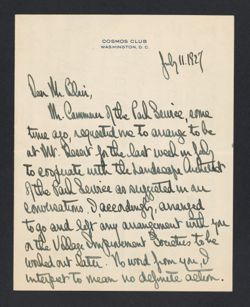 COSMOS CLUB
WASHINGTON, D.C.
July 11. 1927
Dear Mr. Blair,
Mr. Cammerer of the Park Service, some
time ago, requested me to arrange to be
at Mt. Desert for the last week in July
to cooperate with the Landscape Architect
of the Park Service as suggested in our
conversations. I, accordingly, arranged
to go and left any arrangement with you
or the Village Improvement Societies to be
worked out later. No word from you, I
interpret to mean no definite action.